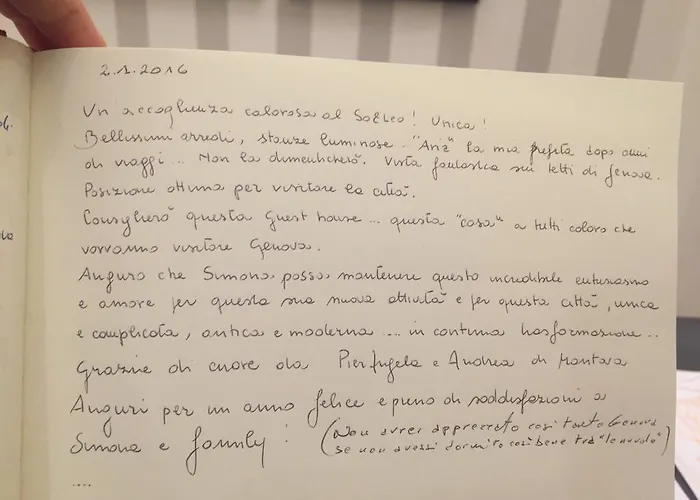 2.1.2016
Un accoglienza calorosa al Soffio! Unica!
Bellissimi arredi, stanze luminose. "Aria" la mia preferita dopo anni
di viaggi... Non la dimenticherò. Vista fantastica sui tetti di Genova.
Posizione ottima per visitare la città.
Consiglierò questa Guest house... questa "casa" a tutti coloro che
vorranno visitare Genova.
Auguro che Simona possa mantenere questo incredibile entusiasmo
e amore per questa sua nuova attività e per questa città, unica
e complicata, antica e moderna .... in continua trasformazione..
Grazie di cuore da Pierangela e Andrea di Mantova
Auguri per un anno felice e pieno di soddisfazioni a
Simona e family! (Non avrei apprezzato così tanto Genova
se non avessi dormito così bene tra "le nuvole")
....